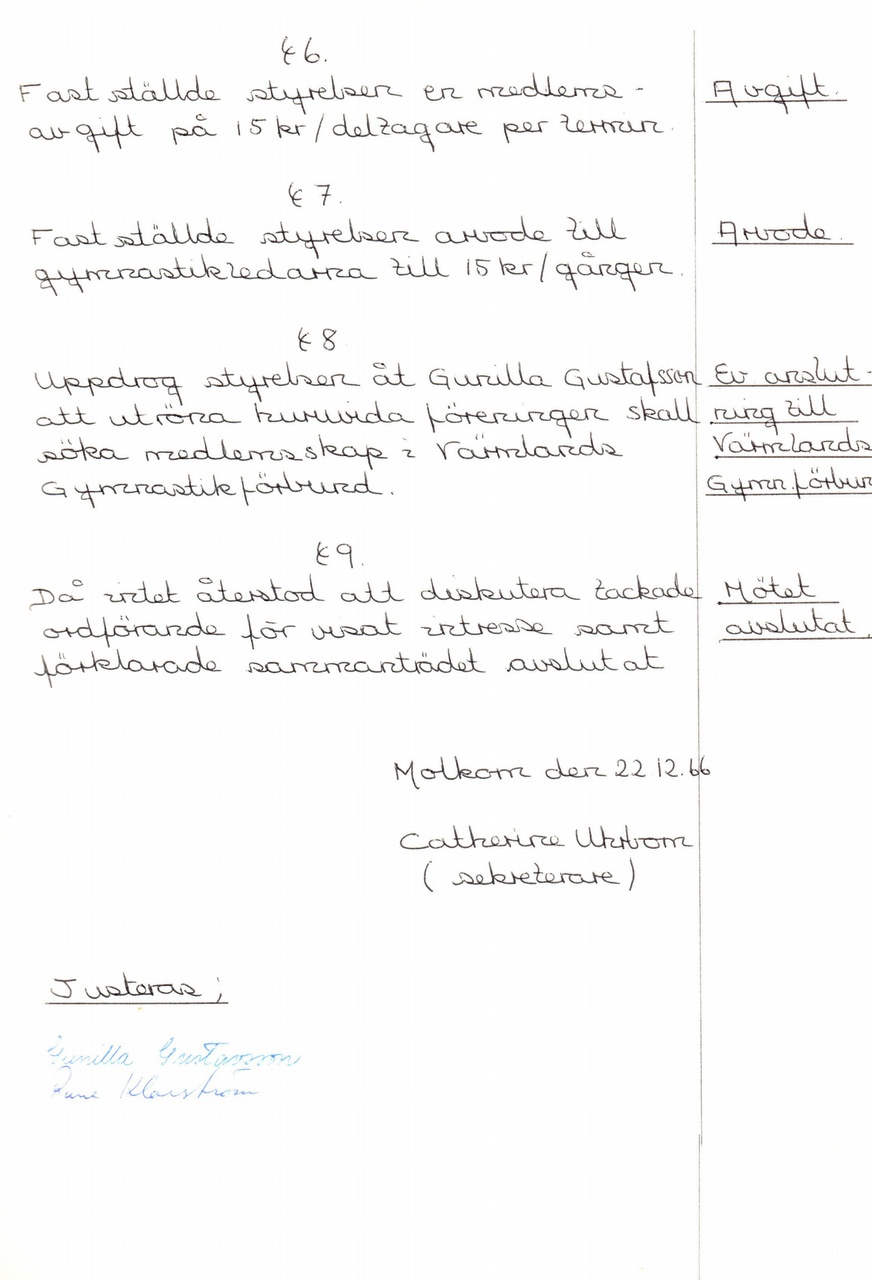 § 6.
Fastställde styrelsen en medlems- Avgift.
avgift på 15 kr/deltagare per termin.
§ 7.
Fastställde styrelsen arvode till Arvode.
gymnastikledarna till 15 kr/gången.
§ 8
Uppdrog styrelsen åt Gunilla Gustafsson Ev anslut-
att utröna huruvida föreningen skall ning till
söka medlemsskap i Värmlands Värmlands
Gymnastikförbund. Gymn.förbun
§ 9.
Då intet återstod att diskutera tackade Mötet
ordförande för visat intresse samt avslutat.
förklarade sammanträdet avslutat
Molkom den 22.12.66
Catherine
(sekreterare)
Justeras;
Gunilla Gustafsson
Rune